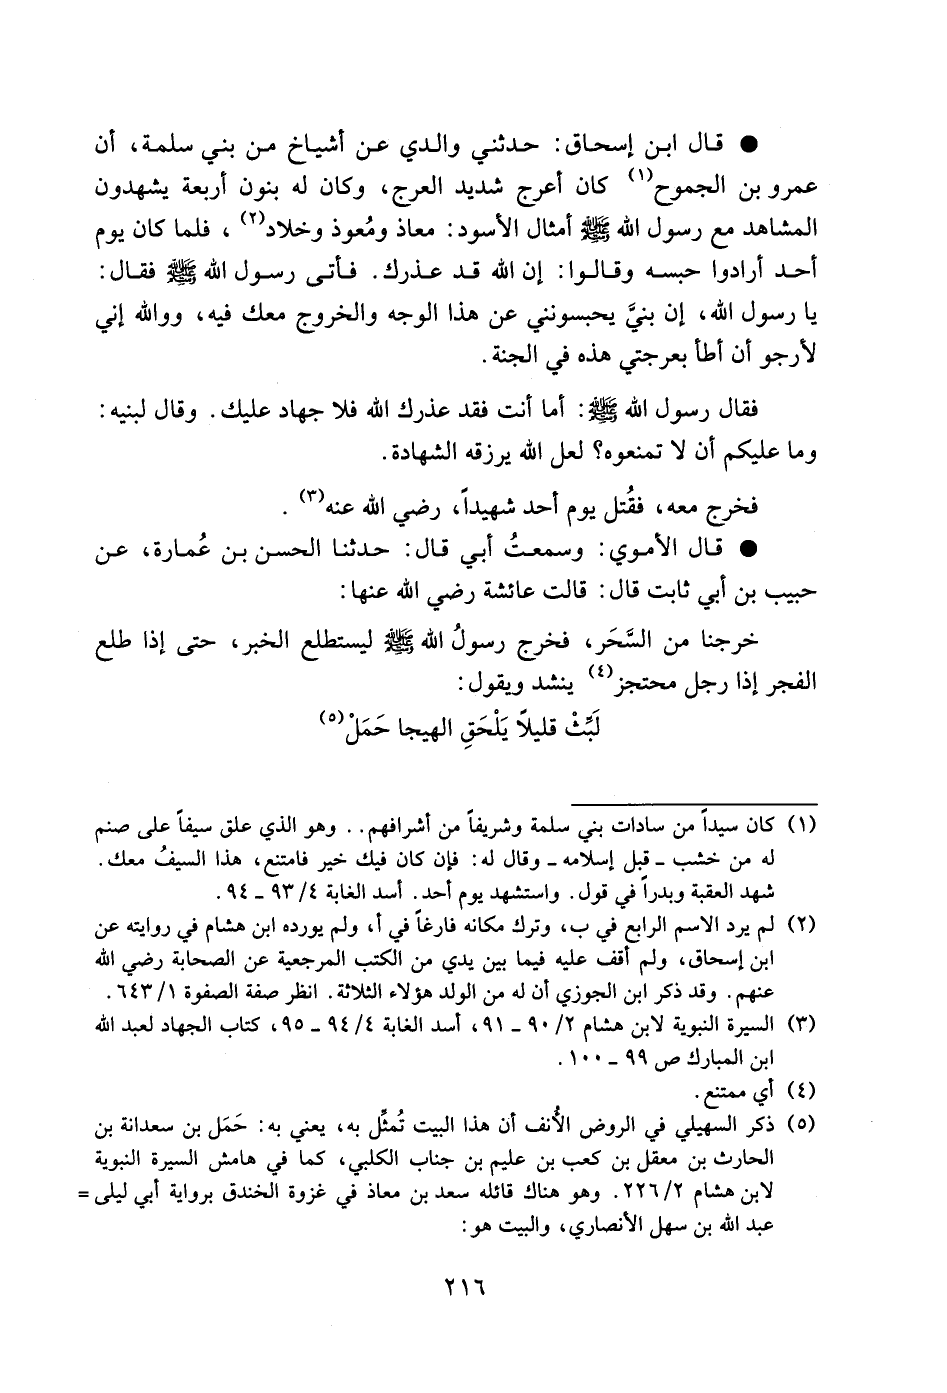 ● قال ابن إسحاق: حدثني والدي عن أشياخ من بني سلمة، أن
عمرو بن الجموح(١) كان أعرج شديد العرج، وكان له بنون أربعة يشهدون
المشاهد مع رسول الله ﷺ أمثال الأسود: معاذ ومُعوذ وخلاد(٢)، فلما كان يوم
أحد أرادوا حبسه وقالوا: إن الله قد عذرك. فأتى رسول الله ﷺ فقال:
يا رسول الله، إن بنيَّ يحبسونني عن هذا الوجه والخروج معك فيه، ووالله إني
لأرجو أن أطأ بعرجتي هذه في الجنة.
فقال رسول الله ﷺ: أما أنت فقد عذرك الله فلا جهاد عليك. وقال لبنيه:
وما عليكم أن لا تمنعوه؟ لعل الله يرزقه الشهادة.
فخرج معه، فقُتل يوم أحد شهيداً، رضي الله عنه(٣).
● قال الأموي: وسمعتُ أبي قال: حدثنا الحسن بن عُمارة، عن
حبيب بن أبي ثابت قال: قالت عائشة رضي الله عنها:
خرجنا من السَّحَر، فخرج رسولُ الله ﷺ ليستطلع الخبر، حتى إذا طلع
الفجر إذا رجل محتجز(٤) ينشد ويقول:
لَبِّثْ قليلاً يَلْحَقِ الهيجا حَمَلْ(٥)
(١) كان سيداً من سادات بني سلمة وشريفاً من أشرافهم.. وهو الذي علق سيفاً على صنم
له من خشب ـ قبل إسلامه ـ وقال له: فإن كان فيك خير فامتنع، هذا السيفُ معك.
شهد العقبة وبدراً في قول. واستشهد يوم أحد. أسد الغابة ٤/ ٩٣ ـ ٩٤.
(٢) لم يرد الاسم الرابع في ب، وترك مكانه فارغاً في أ، ولم يورده ابن هشام في روايته عن
ابن إسحاق، ولم أقف عليه فيما بين يدي من الكتب المرجعية عن الصحابة رضي الله
عنهم. وقد ذكر ابن الجوزي أن له من الولد هؤلاء الثلاثة. انظر صفة الصفوة ١/ ٦٤٣.
(٣) السيرة النبوية لابن هشام ٢/ ٩٠ ـ ٩١، أسد الغابة ٤/ ٩٤ ـ ٩٥، كتاب الجهاد لعبد الله
ابن المبارك ص ٩٩ ـ ١٠٠.
(٤) أي ممتنع.
(٥) ذكر السهيلي في الروض الأُنف أن هذا البيت تُمثِّل به، يعني به: حَمَل بن سعدانة بن
الحارث بن معقل بن كعب بن عليم بن جناب الكلبي، كما في هامش السيرة النبوية
لابن هشام ٢/ ٢٢٦. وهو هناك قائله سعد بن معاذ في غزوة الخندق برواية أبي ليلى =
عبد الله بن سهل الأنصاري، والبيت هو:
٢١٦